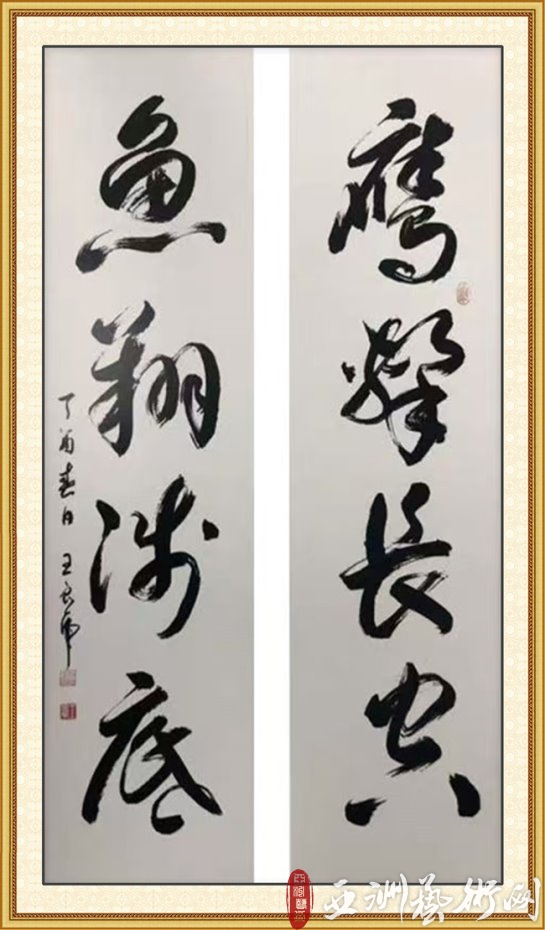 鹰击长空
鱼翔浅底
丁酉春日 王
亚洲艺术网